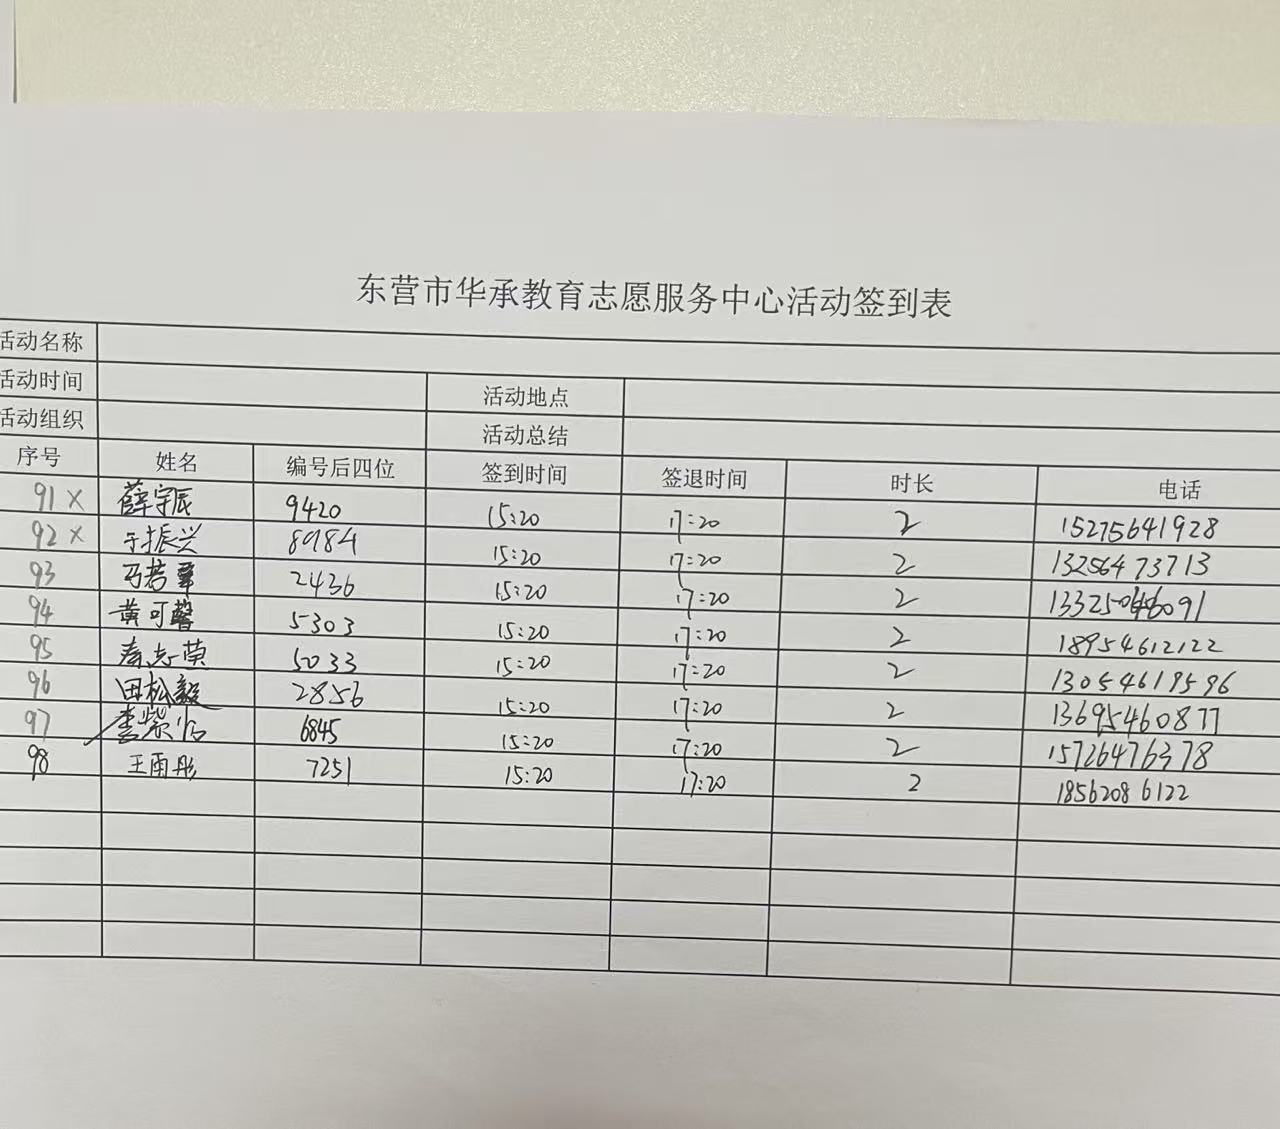 东营市华承教育志愿服务中心活动签到表
活动名称
活动时间 活动地点
活动组织 活动总结
序号 姓名 编号后四位 签到时间 签退时间 时长 电话
91 × 薛宇辰 9420 15:20 17:20 2 15275641928
92 × 于振兴 8984 15:20 17:20 2 13256473713
93 马若 2436 15:20 17:20 2
94 黄可馨 5303 15:20 17:20 2 18954612122
95 秦志 5033 15:20 17:20 2 13054619596
96 田松毅 2856 15:20 17:20 2 13695460877
97 李紫怡 6845 15:20 17:20 2 15726476378
98 王雨彤 7251 15:20 17:20 2 18562086122